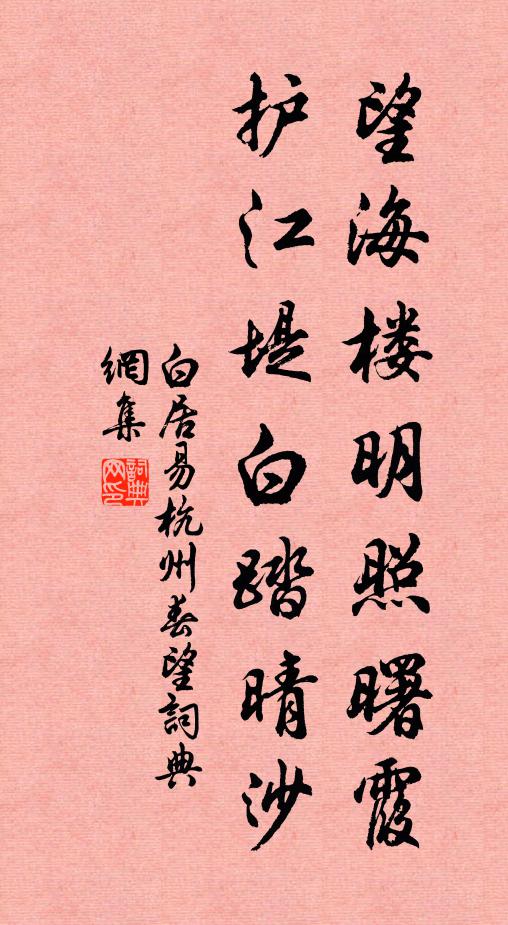 望海楼明照曙霞
护江堤白踏晴沙
白居易杭州春望詞典
網集
詞典
网印